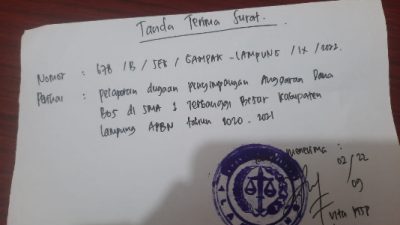 Tanda Terima Surat.
Nomor : 678 /B / SEK / GAMPAK - LAMPUNG / IX / 2022.
Perihal : pelaporan dugaan penyimpangan Anggaran Dana
BOS di SMA 1 Terbanggi Besar Kabupaten
Lampung APBN tahun 2020 - 2021
menerima :
02 / 22
09